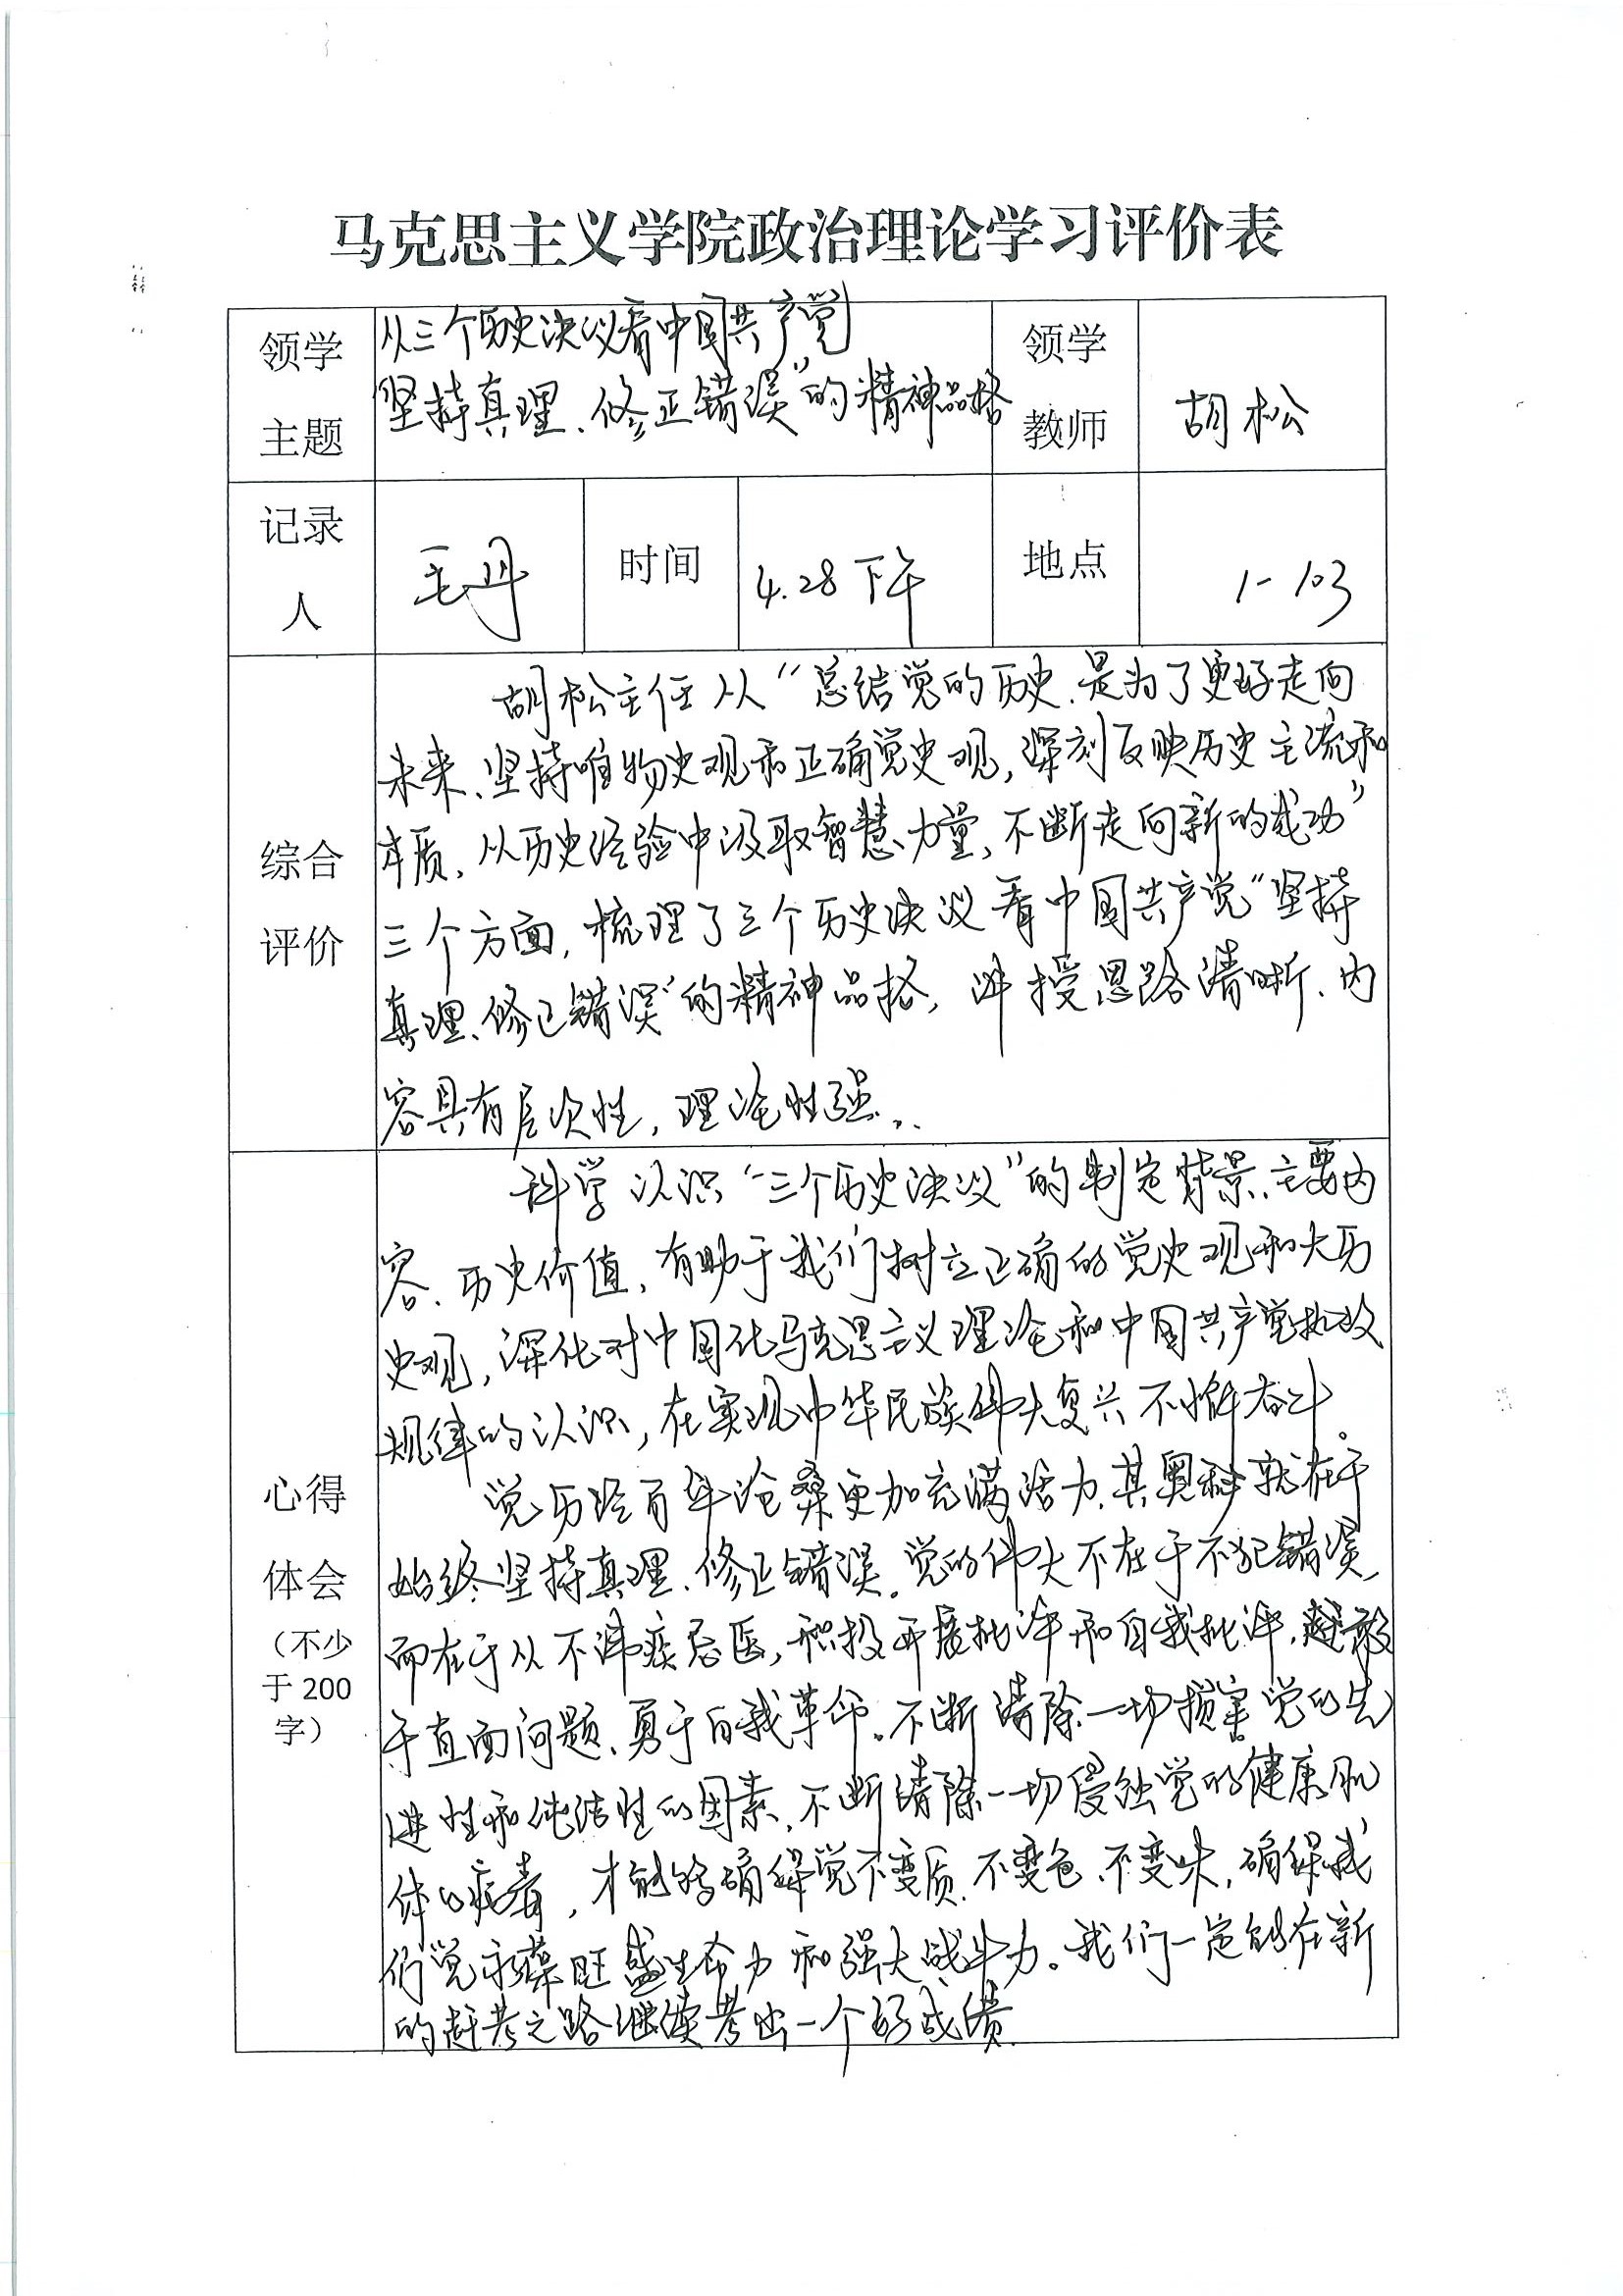 马克思主义学院政治理论学习评价表
领学
主题
从三个历史决议看中国共产党
"坚持真理、修正错误"的精神品格
领学
教师
胡松
记录
人
毛丹
时间
4.28 下午
地点
1-103
综合
评价
胡松主任从"总结党的历史、是为了更好走向
未来、坚持唯物史观和正确党史观,深刻反映历史主流和
本质、从历史经验中汲取智慧力量,不断走向新的成功"
三个方面,梳理了三个历史决议看中国共产党"坚持
真理、修正错误"的精神品格,讲授思路清晰、内
容具有层次性,理论性强。
心得
体会
(不少
于200
字)
科学认识"三个历史决议"的制定背景、主要内
容、历史价值,有助于我们树立正确的党史观和大历
史观,深化对中国化马克思主义理论和中国共产党执政
规律的认识,在实现中华民族伟大复兴不懈奋斗。
党历经百年沧桑更加充满活力,其奥秘就在于
始终坚持真理、修正错误。党的伟大不在于不犯错误,
而在于从不讳疾忌医,积极开展批评和自我批评,敢
于直面问题、勇于自我革命。不断清除一切损害党的先
进性和纯洁性的因素,不断清除一切侵蚀党的健康肌
体的病毒,才能够确保党不变质、不变色、不变味,确保我
们党永葆旺盛生命力和强大战斗力。我们一定能在新
的赶考之路继续考出一个好成绩。